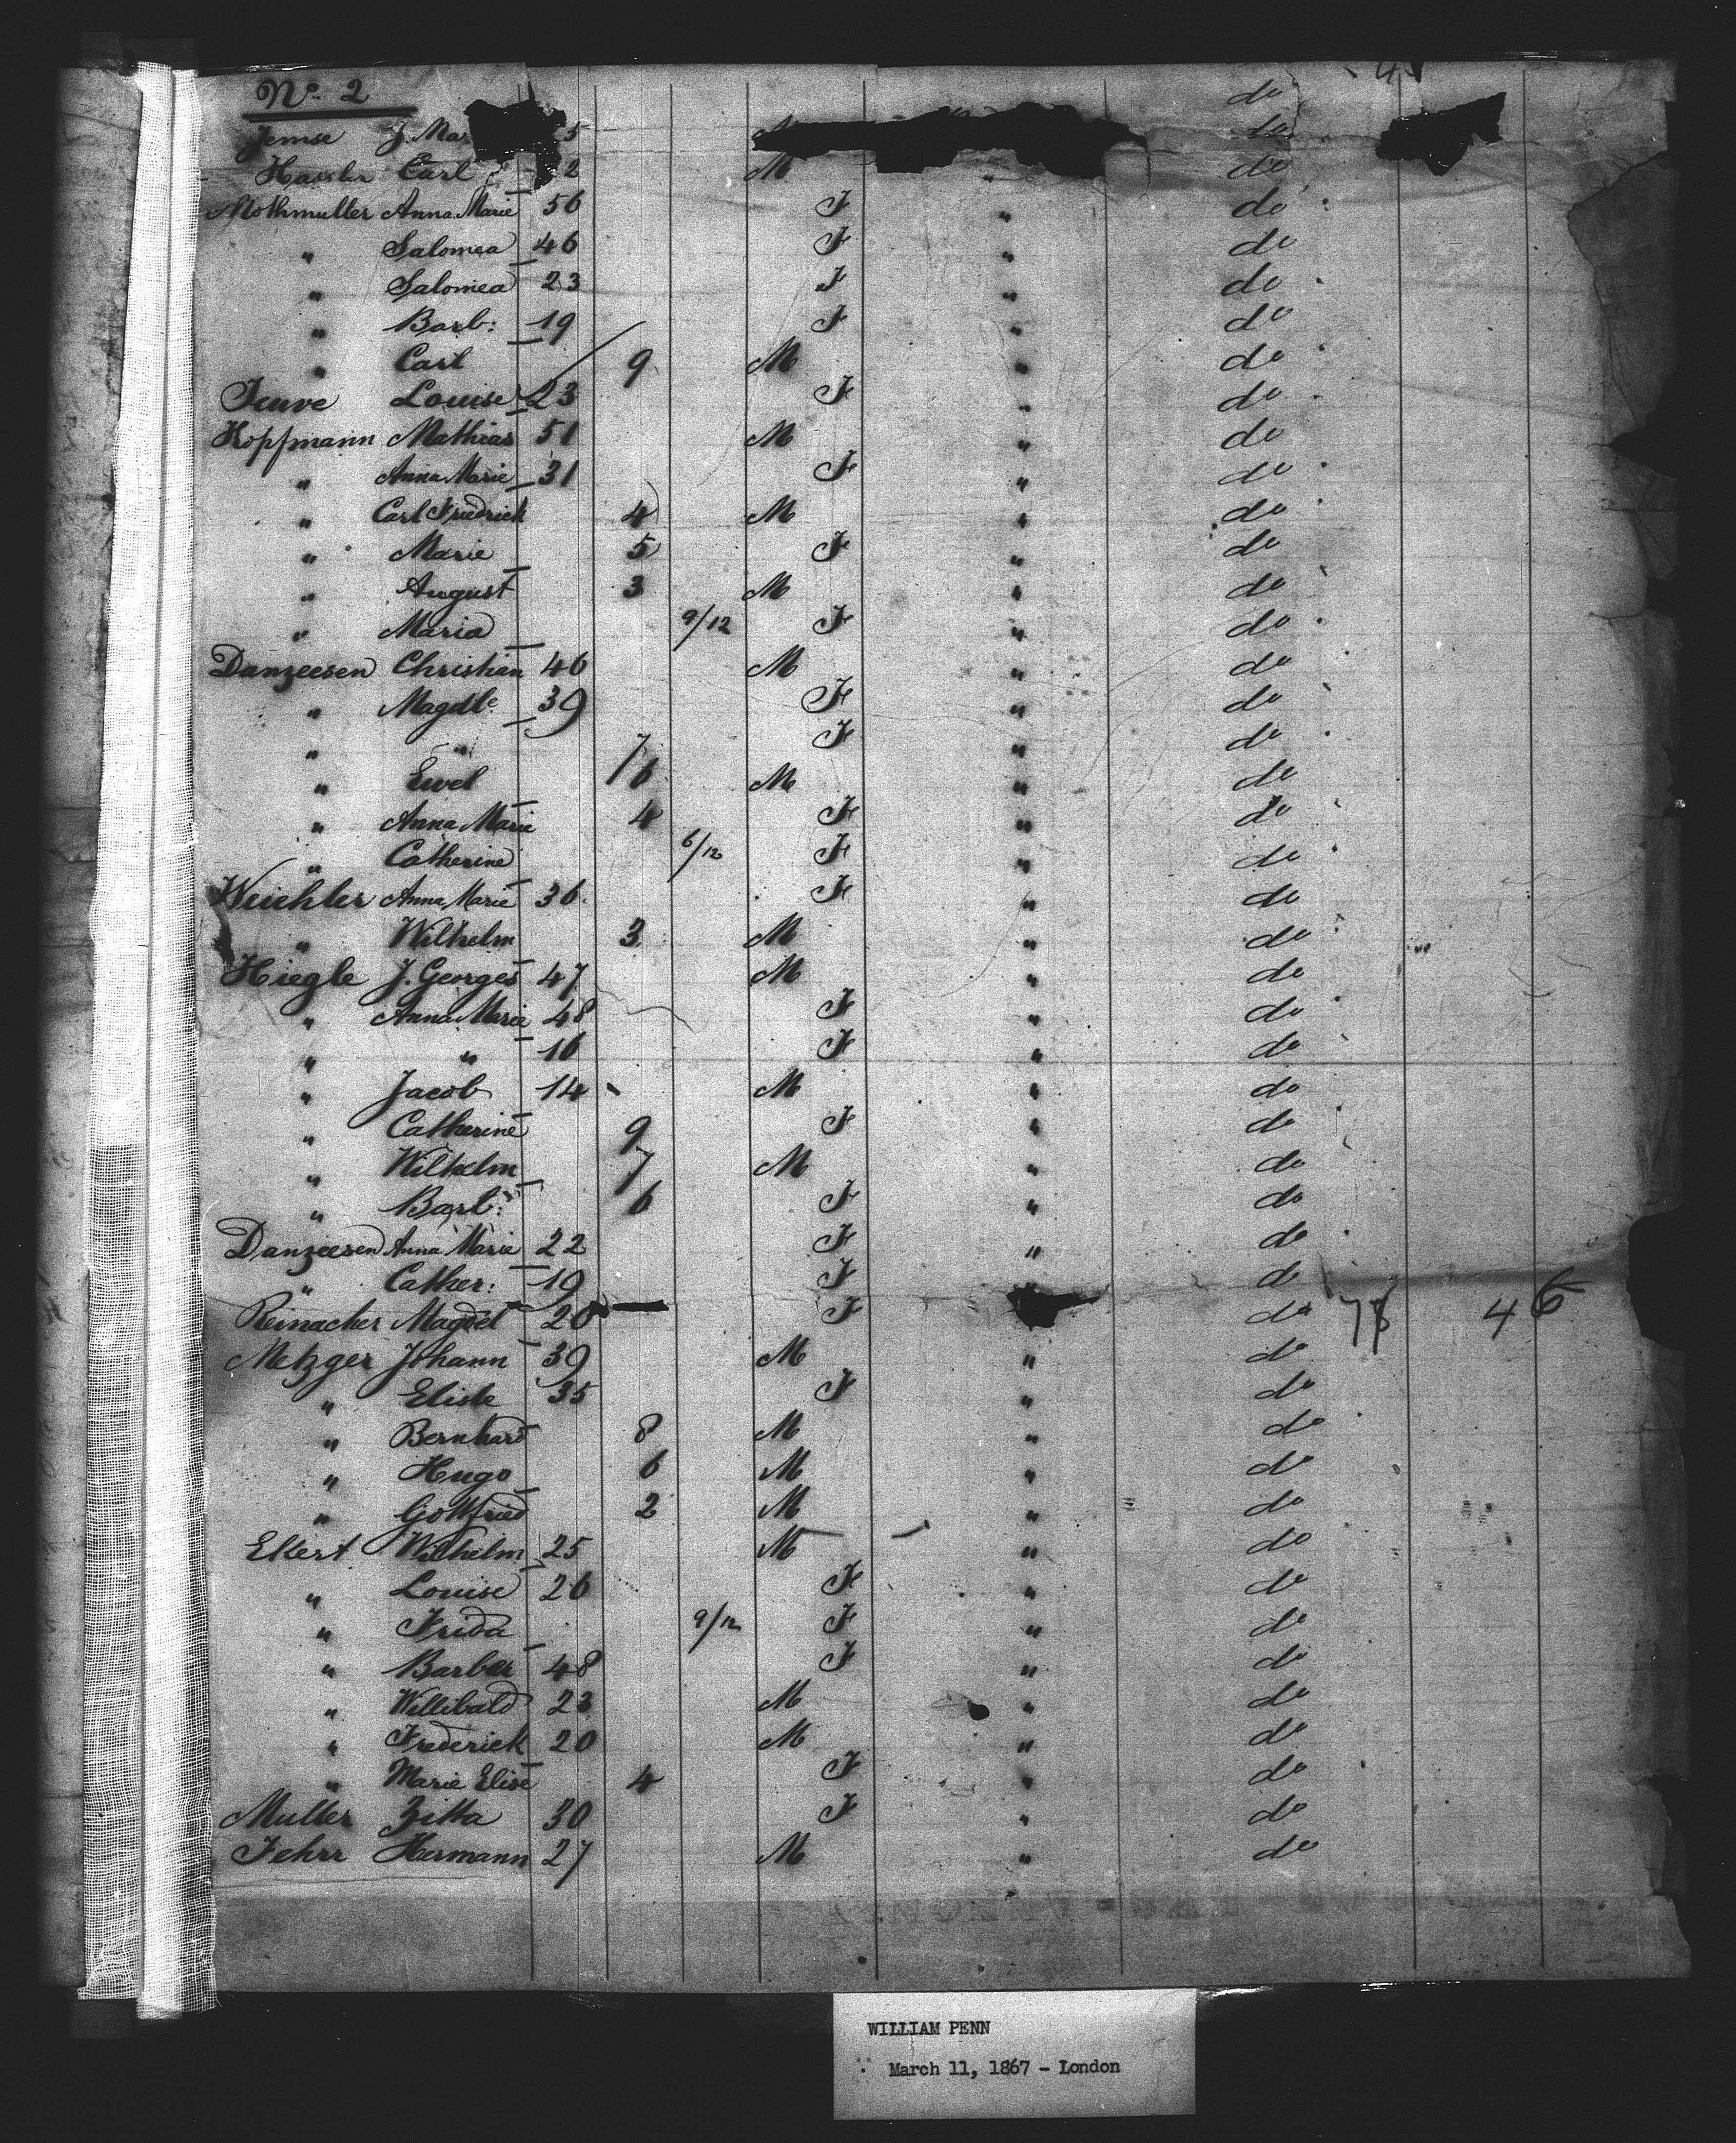 No. 2 do
J. Mar 5 M do
Hassler Carl 2 M do
Mothmuller Anna Marie 56 F " do
" Salomea 46 F " do
" Salomea 23 F " do
" Barb: 19 F " do
" Carl 9 M " do
Jeuve Louise 23 F " do
Kopfmann Mathias 51 M " do
" Anna Marie 31 F " do
" Carl Friedrich 4 M " do
" Marie 5 F " do
" August 3 M " do
" Maria 9/12 F " do
Danzeesen Christian 46 M " do
" Magdle. 39 F " do
" " 7 F " do
" Ewel 6 M " do
" Anna Marie 4 F " do
" Catherine 6/12 F " do
Weichler Anna Marie 36. F " do
" Wilhelm 3 M " do
Hiegle J. Georges 47 M " do
" Anna Marie 48 F " do
" " 16 F " do
" Jacob 14 M " do
" Catherine 9 F " do
" Wilhelm 7 M " do
" Barb: 6 F " do
Danzeesen Anna Marie 22 F " do
" Cather: 19 F " do
Reinacher Magdel 20 F do 78 46
Metzger Johann 39 M " do
" Elisle 35 F " do
" Bernhard 8 M " do
" Hugo 6 M " do
" Gottfried 2 M " do
Ekert Wilhelm 25 M " do
" Louise 26 F " do
" Frida 9/12 F " do
" Barber 48 F " do
" Willibald 23 M " do
" Frederick 20 M " do
" Marie Elise 4 F " do
Muller Zitta 30 F " do
Fehrr Hermann 27 M " do
WILLIAM PENN
March 11, 1867 - London